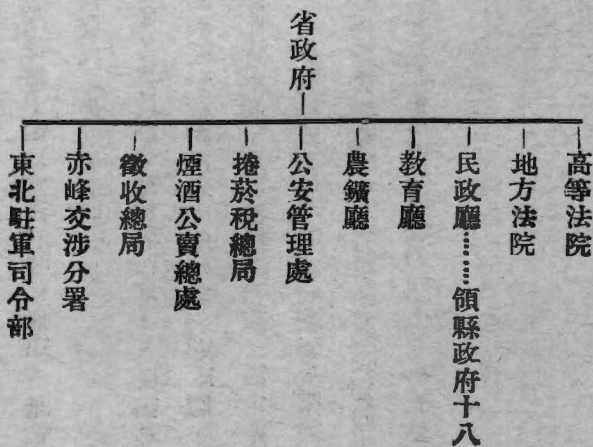 省政府
高等法院
地方法院
民政廳………領縣政府十八
教育廳
農鑛廳
公安管理處
捲菸稅總局
煙酒公賣總處
徵收總局
赤峰交涉分署
東北駐軍司令部